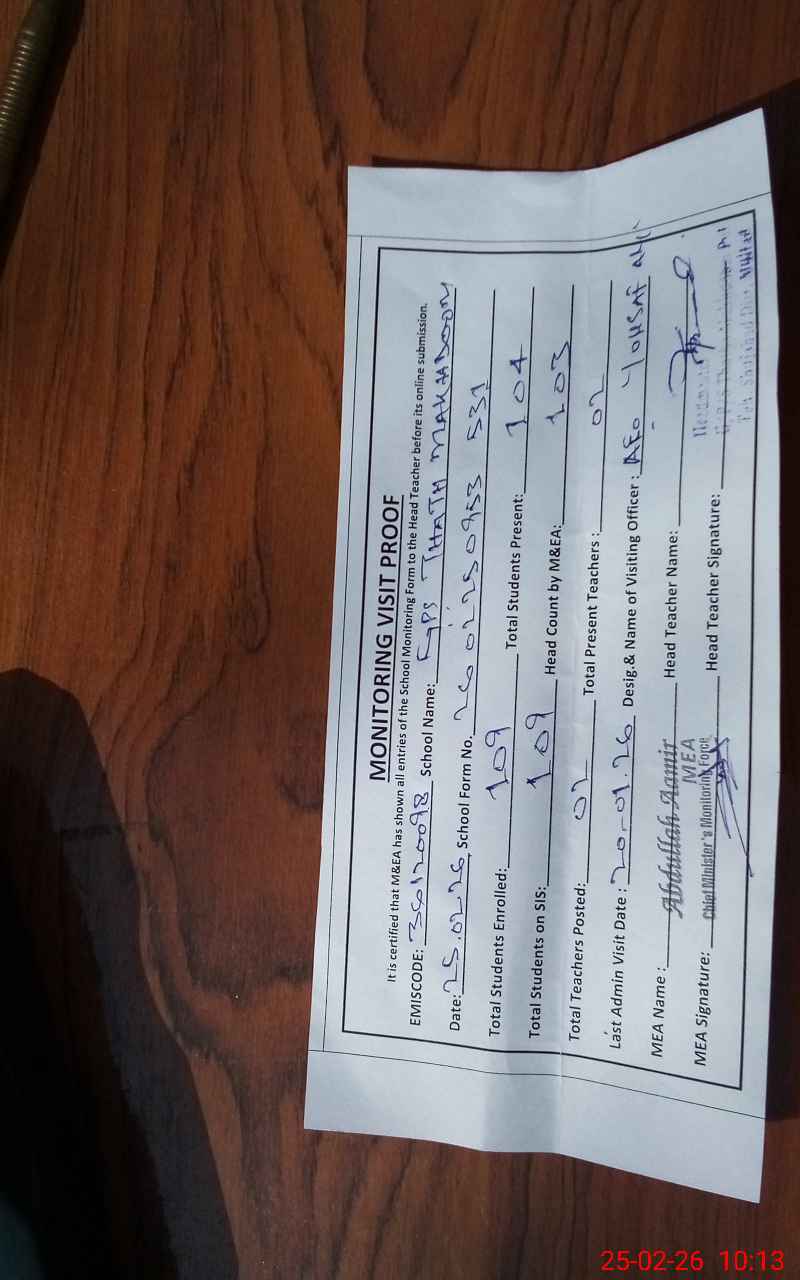 MONITORING VISIT PROOF
It is certified that M&EA has shown all entries of the School Monitoring Form to the Head Teacher before its online submission.
EMISCODE: 36120098 School Name: GPS THATH MAKHDOOM
Date: 25.02.26 School Form No. 2602250953 531
Total Students Enrolled: 109 Total Students Present: 104
Total Students on SIS: 109 Head Count by M&EA: 103
Total Teachers Posted: 02 Total Present Teachers : 02
Last Admin Visit Date : 20-01.26 Desig.& Name of Visiting Officer : AEO YOUSAF
MEA Name : Abdullah Aamir Head Teacher Name:
MEA
MEA Signature: Chief Minister's Monitoring Force Head Teacher Signature:
25-02-26 10:13